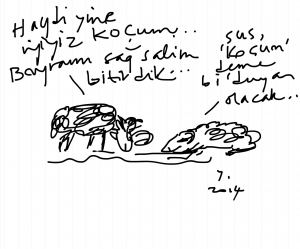 Haydi yine
iyiyiz koçum..
Bayramı sağ salim
bitirdik...
sus,
'koçum'
deme
bi duyan
olacak..
7.
2014